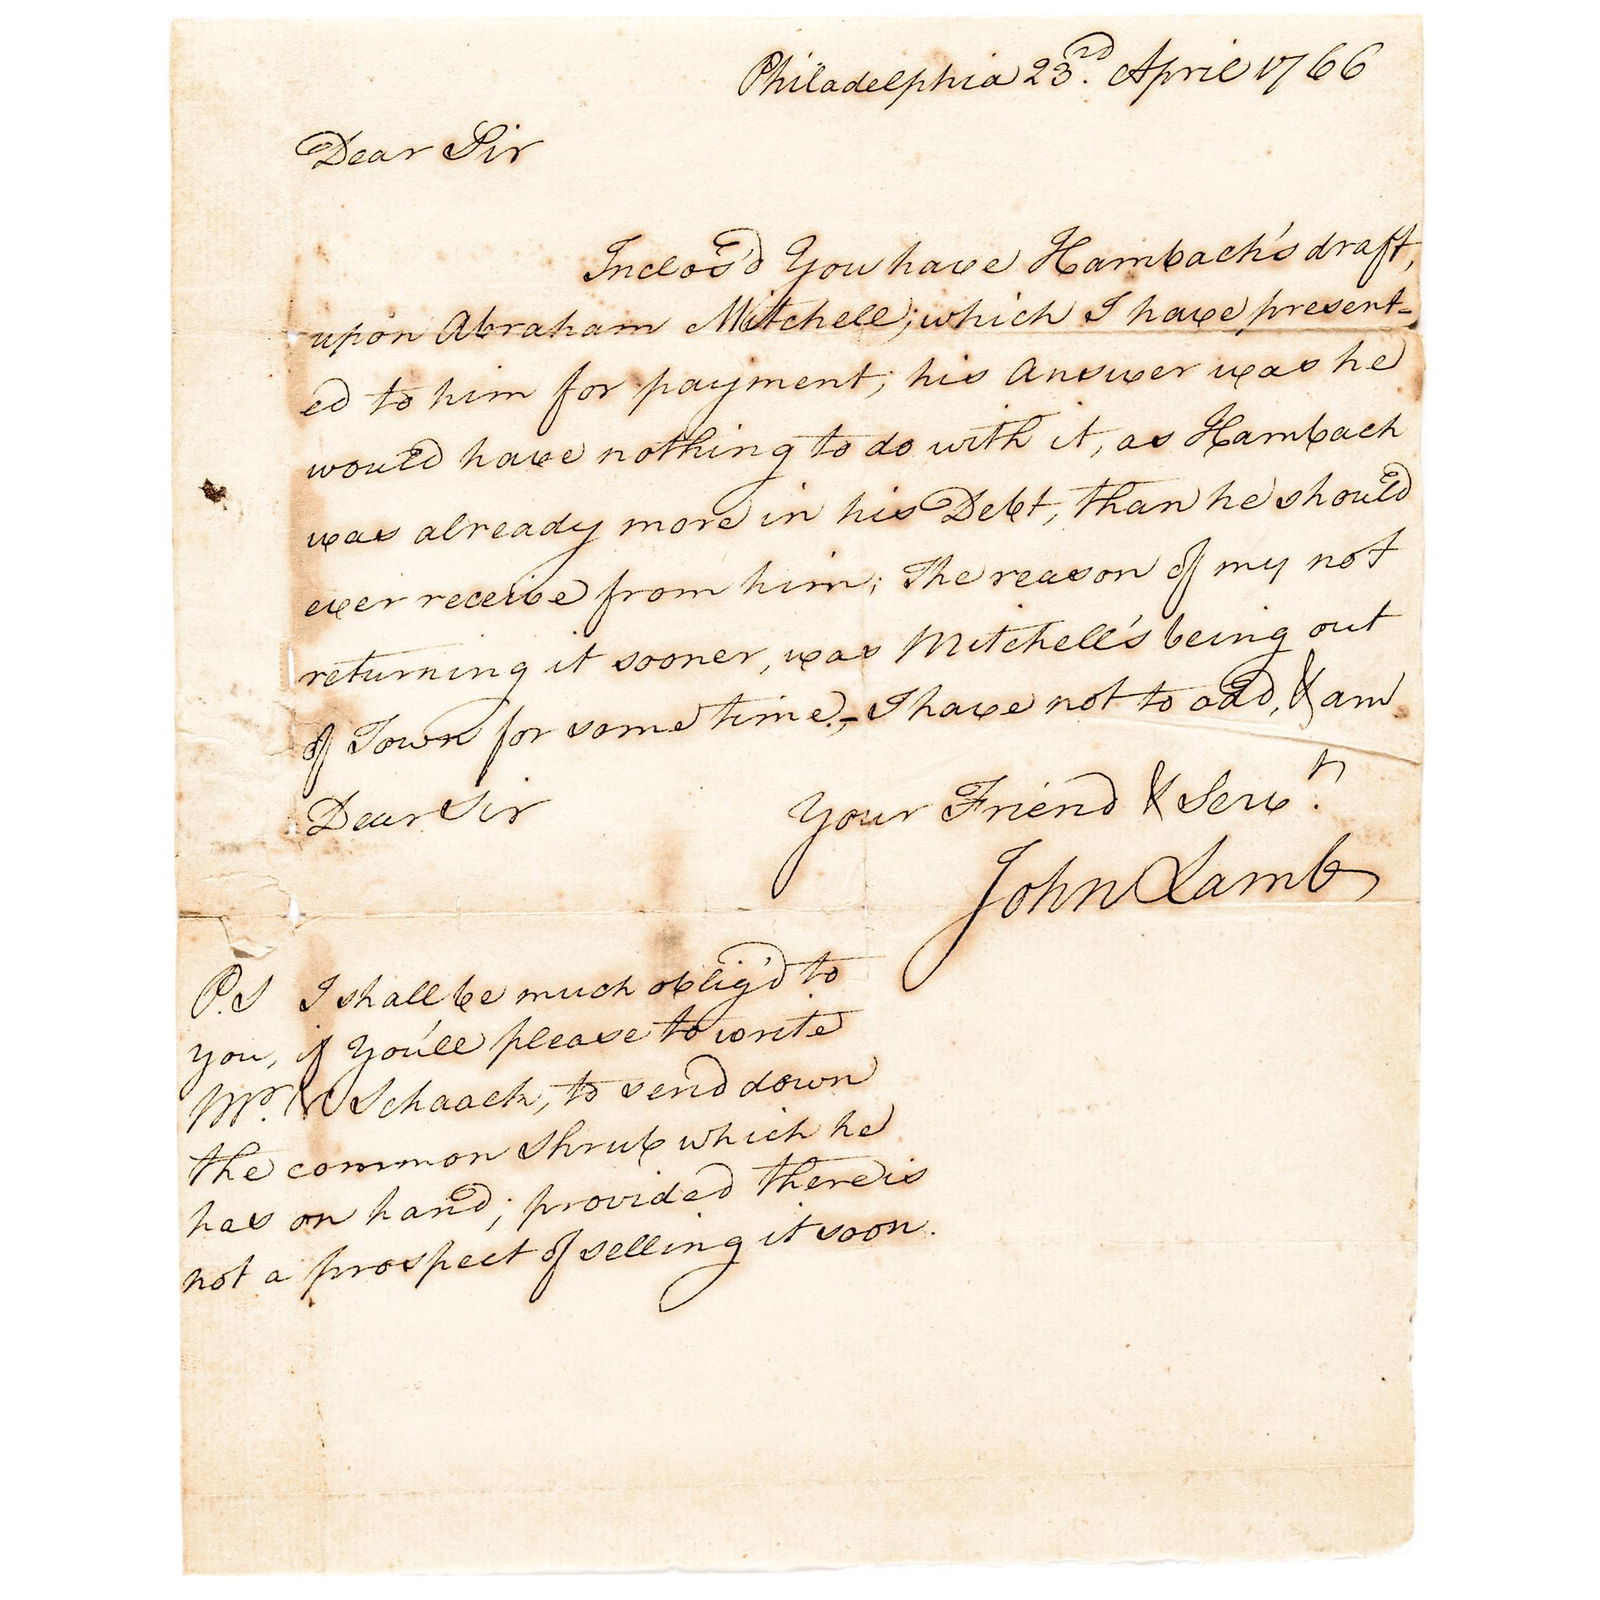 Philadelphia 23rd. April 1766
Dear Sir
Inclos'd You have Hambach's draft,
upon Abraham Mitchell; which I have present-
ed to him for payment; his Answer was he
would have nothing to do with it, as Hambach
was already more in his Debt, than he should
ever receive from him; The reason of my not
returning it sooner, was Mitchell's being out
of Town for some time.- I have not to add, & am
Dear Sir
Your Friend & Servt.
John Lamb
P.S I shall be much oblig'd to
you, if You'll please to write
Mr. V Schaack, to send down
the common Shrub which he
has on hand; provided there is
not a prospect of selling it soon.